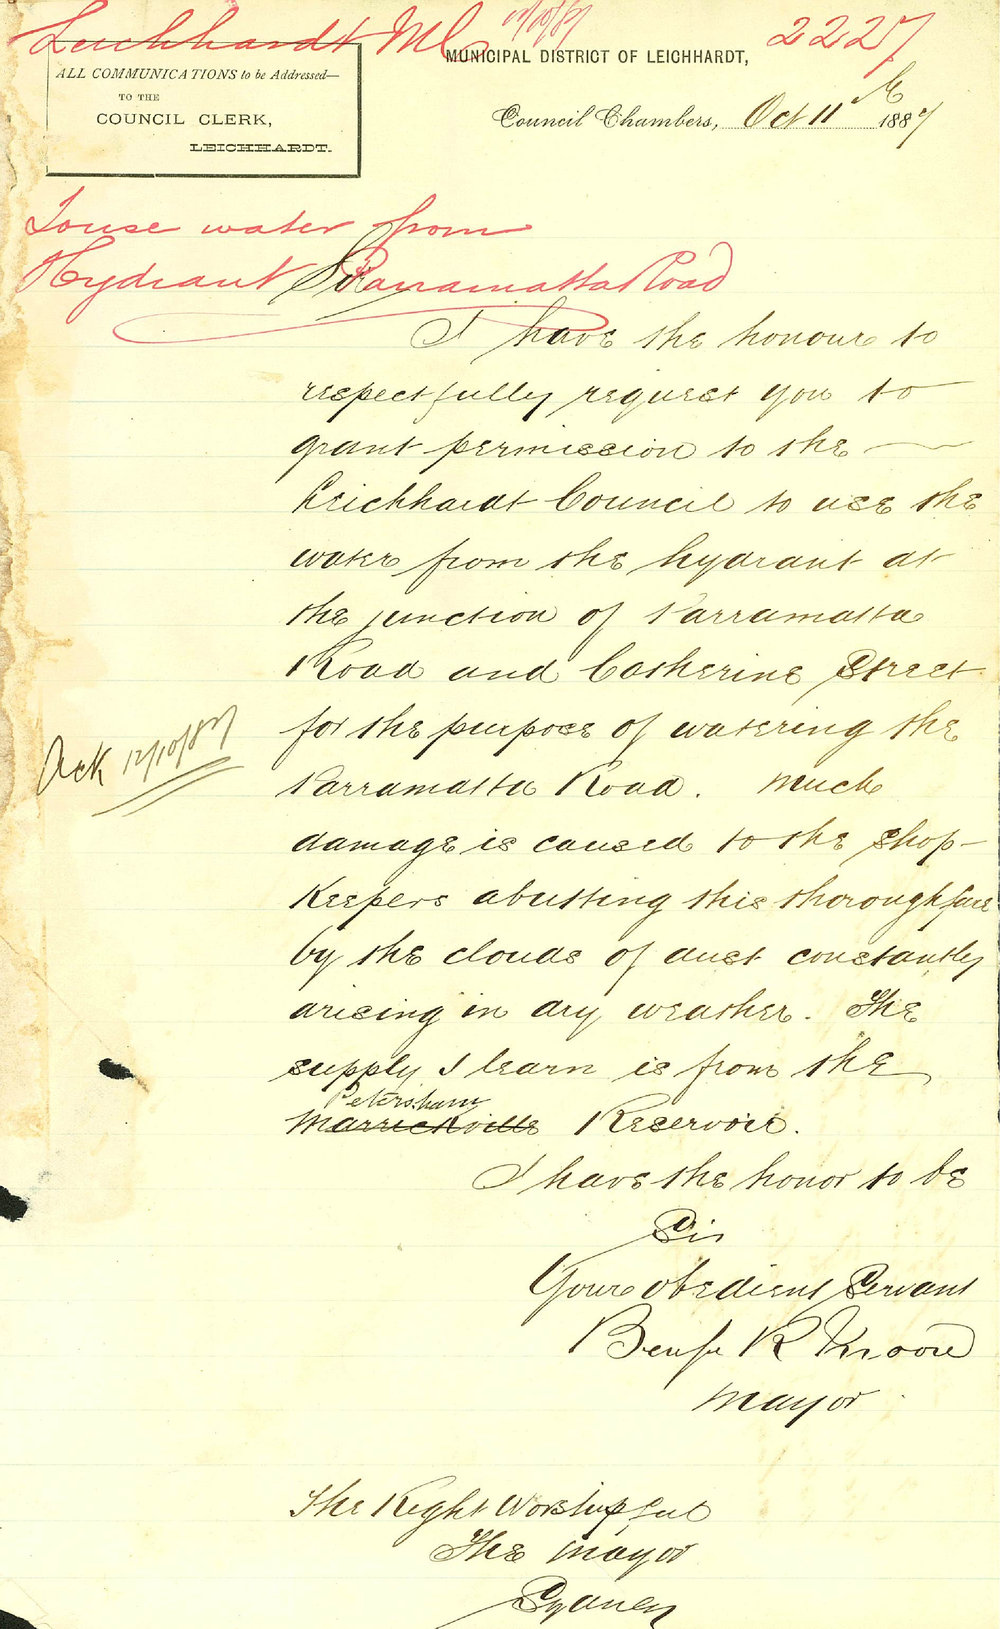 Leichhardt MC 12/10/87 2227
MUNICIPAL DISTRICT OF LEICHHARDT,
ALL COMMUNICATIONS to be Addressed—
TO THE
COUNCIL CLERK,
LEICHHARDT.
Council Chambers, Oct 11th 1887
To use water from
Hydrant Parramatta Road
Sir
I have the honour to
respectfully request you to
grant permission to the
Leichhardt Council to use the
water from the hydrant at
the junction of Parramatta
Road and Catherine Street
for the purpose of watering the
Ack 12/10/87
Parramatta Road. Much
damage is caused to the shop-
keepers abutting this thoroughfare
by the clouds of dust constantly
arising in dry weather. The
supply I learn is from the
Petersham
Marrickville Reservoir.
I have the honor to be
Sir
Your obedient Servant
Benj R Moore
Mayor
The Right Worshipful
The Mayor
Sydney